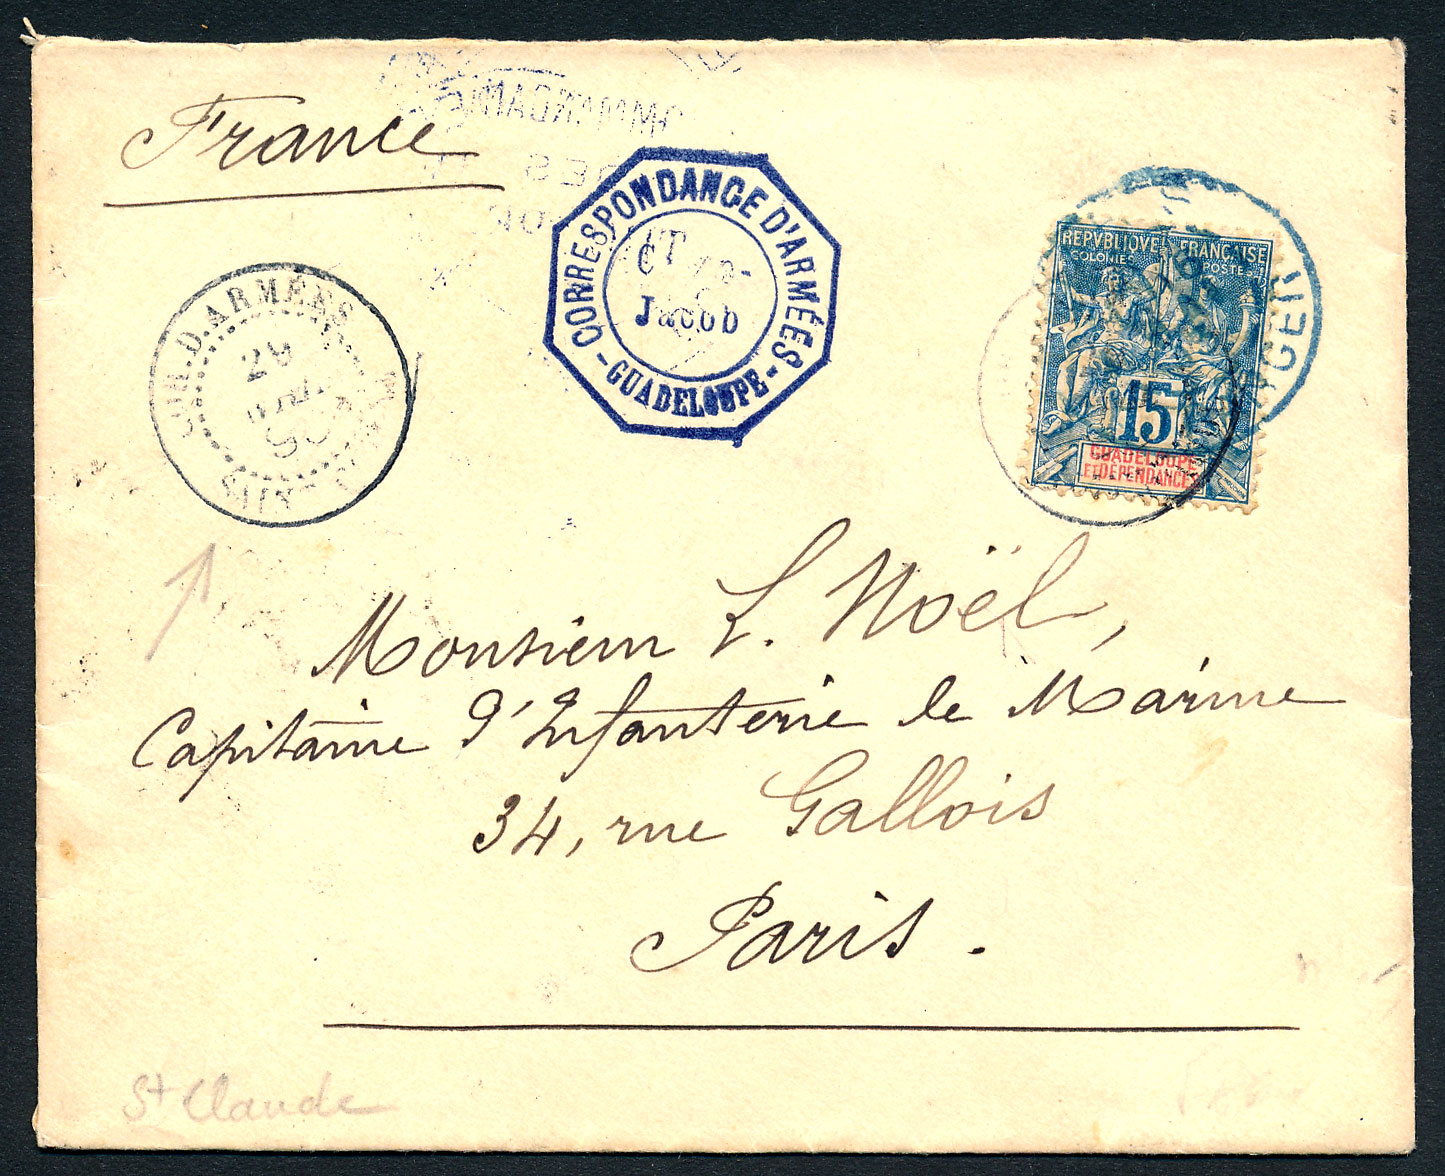 France
CORRESPONDANCE D'ARMÉES
Jacob
- GUADELOUPE -
COR. D. ARMÉES
29
SAINT
REPVBLIQVE FRANÇAISE
COLONIES POSTES
15
GUADELOUPE
ET DÉPENDANCES
Monsieur L. Noël,
Capitaine d'Infanterie de Marine
34, rue Gallois
Paris.
St Claude